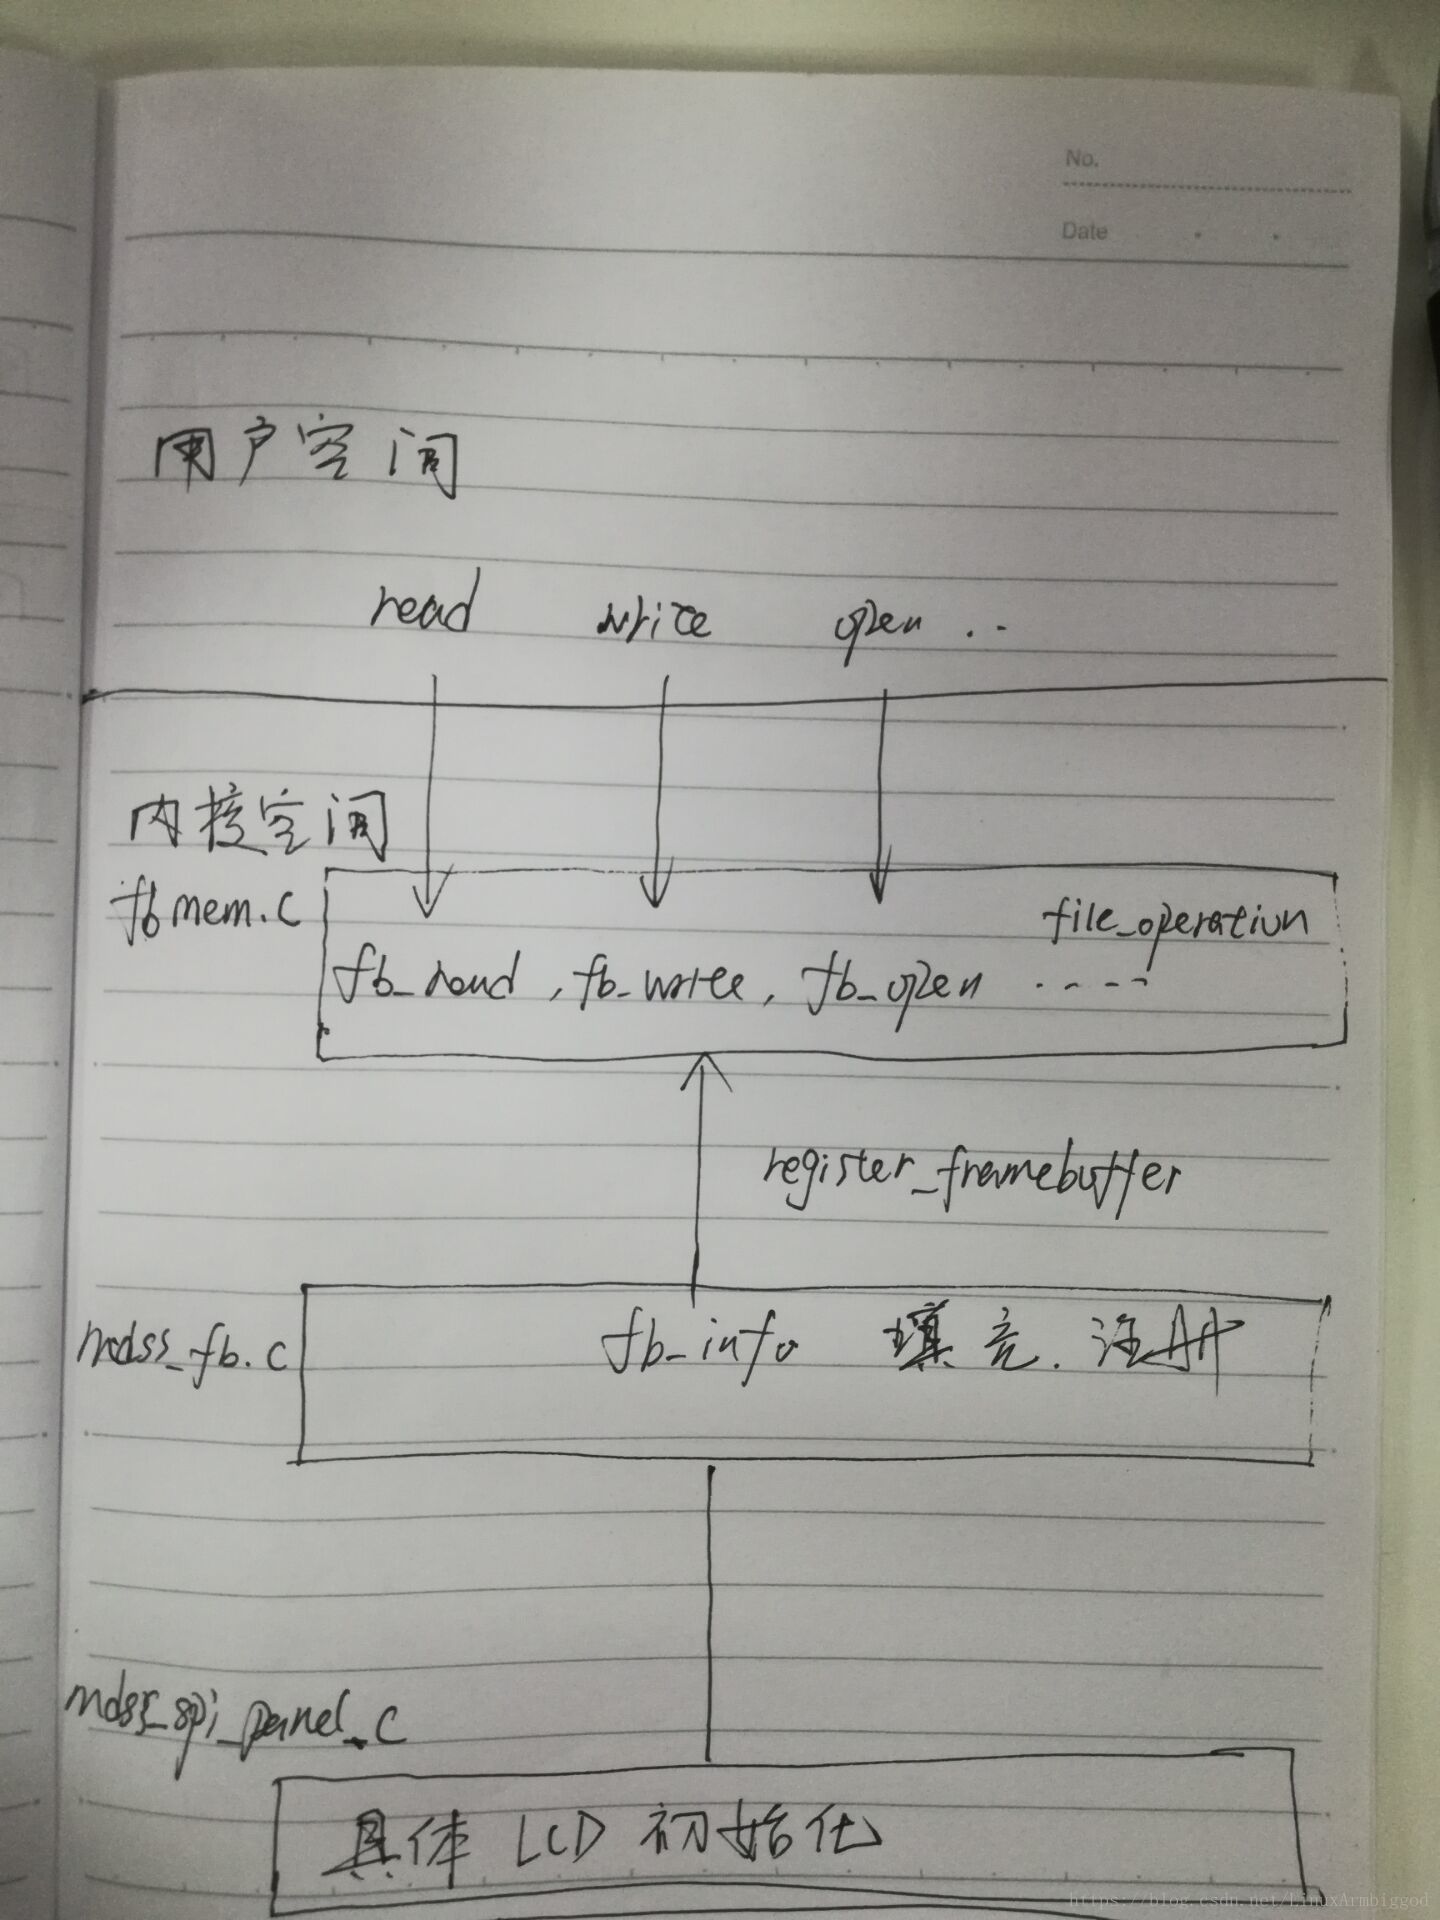 No.
Date
用户空间
read write open ..
内核空间
fbmem.c
file_operation
fb_read , fb_write , fb_open ....
register_framebuffer
mdss_fb.c
fb_info 填充. 注册
mdss_spi_panel_c
具体 LCD 初始化
https://blog.csdn.net/LinuxArmbiggod